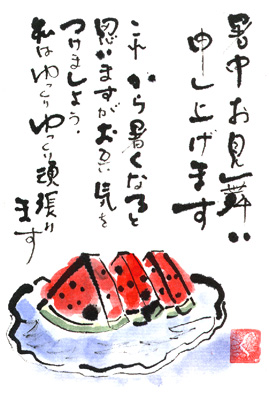 暑中お見舞い
申し上げます
これから暑くなると
思いますがお互い気を
つけましょう。
私はゆっくりゆっくり頑張り
ます